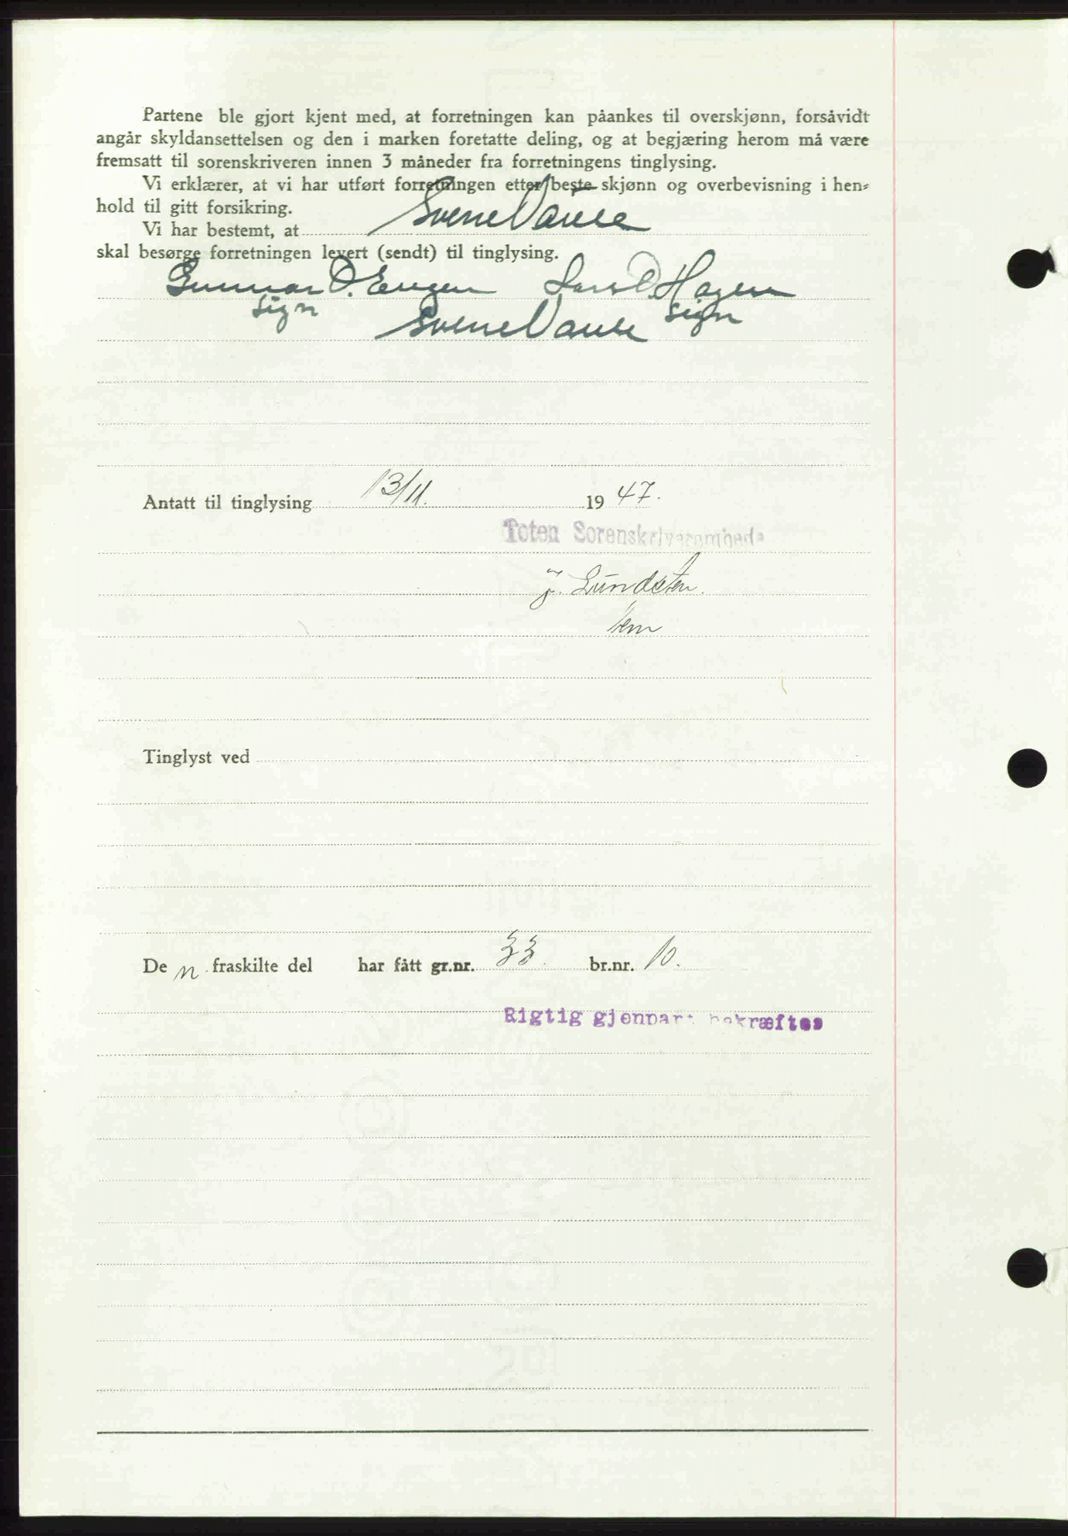 Partene ble gjort kjent med, at forretningen kan påankes til overskjønn, forsåvidt
angår skyldansettelsen og den i marken foretatte deling, og at begjæring herom må være
fremsatt til sorenskriveren innen 3 måneder fra forretningens tinglysing.
Vi erklærer, at vi har utført forretningen etter beste skjønn og overbevisning i hen-
hold til gitt forsikring.
Vi har bestemt, at
skal besørge forretningen levert (sendt) til tinglysing.
Gunnar O. Engen Lars O. Hagen
sign sign
Antatt til tinglysing 13/11. 1947.
Toten Sorenskriverembede
J. Lundsten
Tinglyst ved
De n fraskilte del har fått gr.nr. 33. br.nr. 10.
Rigtig gjenpart bekræftes